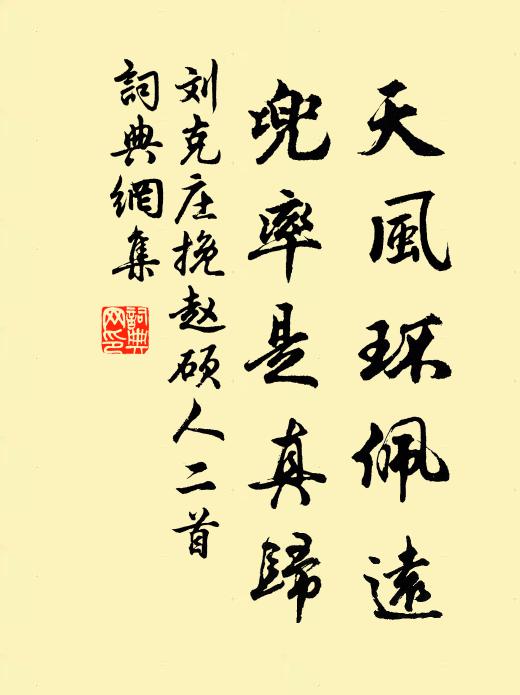 天風环佩遠
兜率是真歸
刘克庄挽赵硕人二首
詞典網集
詞典网印